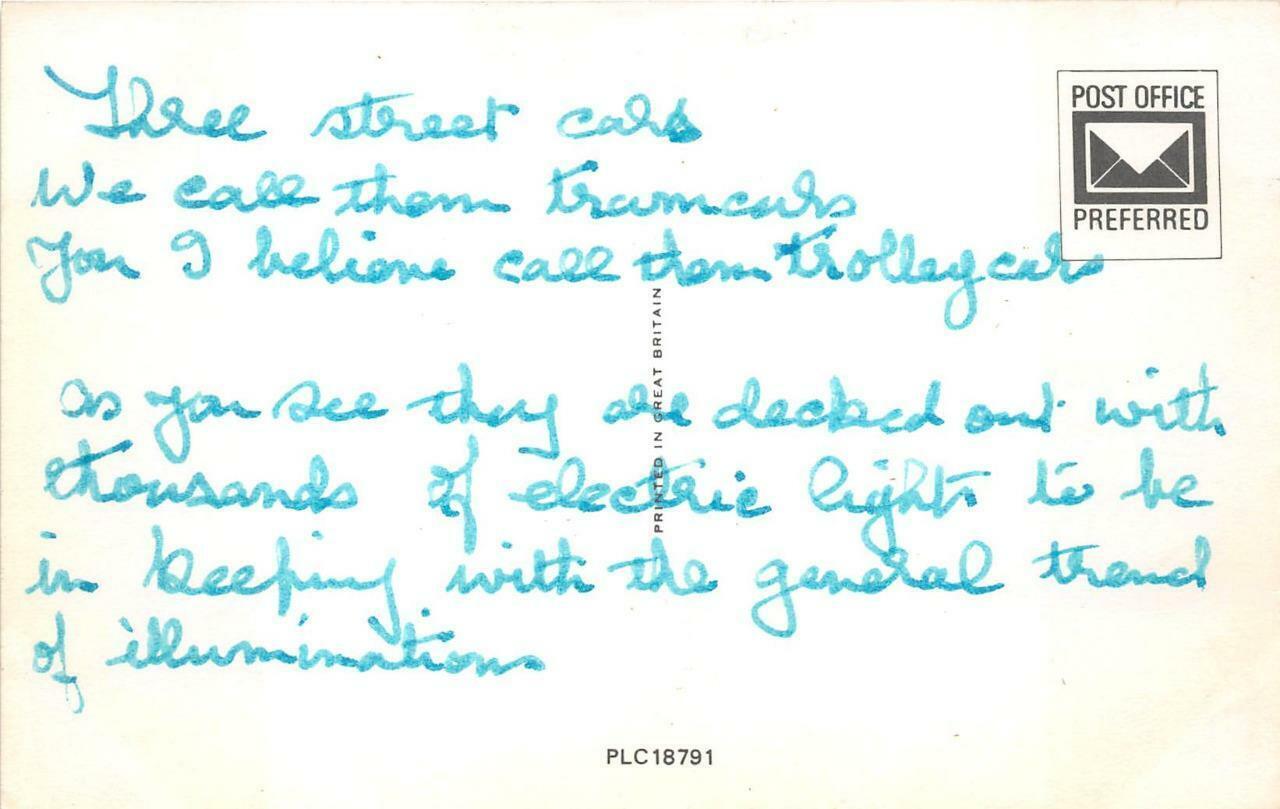 Three street cars
We call them tramcars
You I believe call them trolleycars
as you see they are decked out with
thousands of electric lights to be
in keeping with the general trend
of illuminations
POST OFFICE
PREFERRED
PRINTED IN GREAT BRITAIN
PLC18791